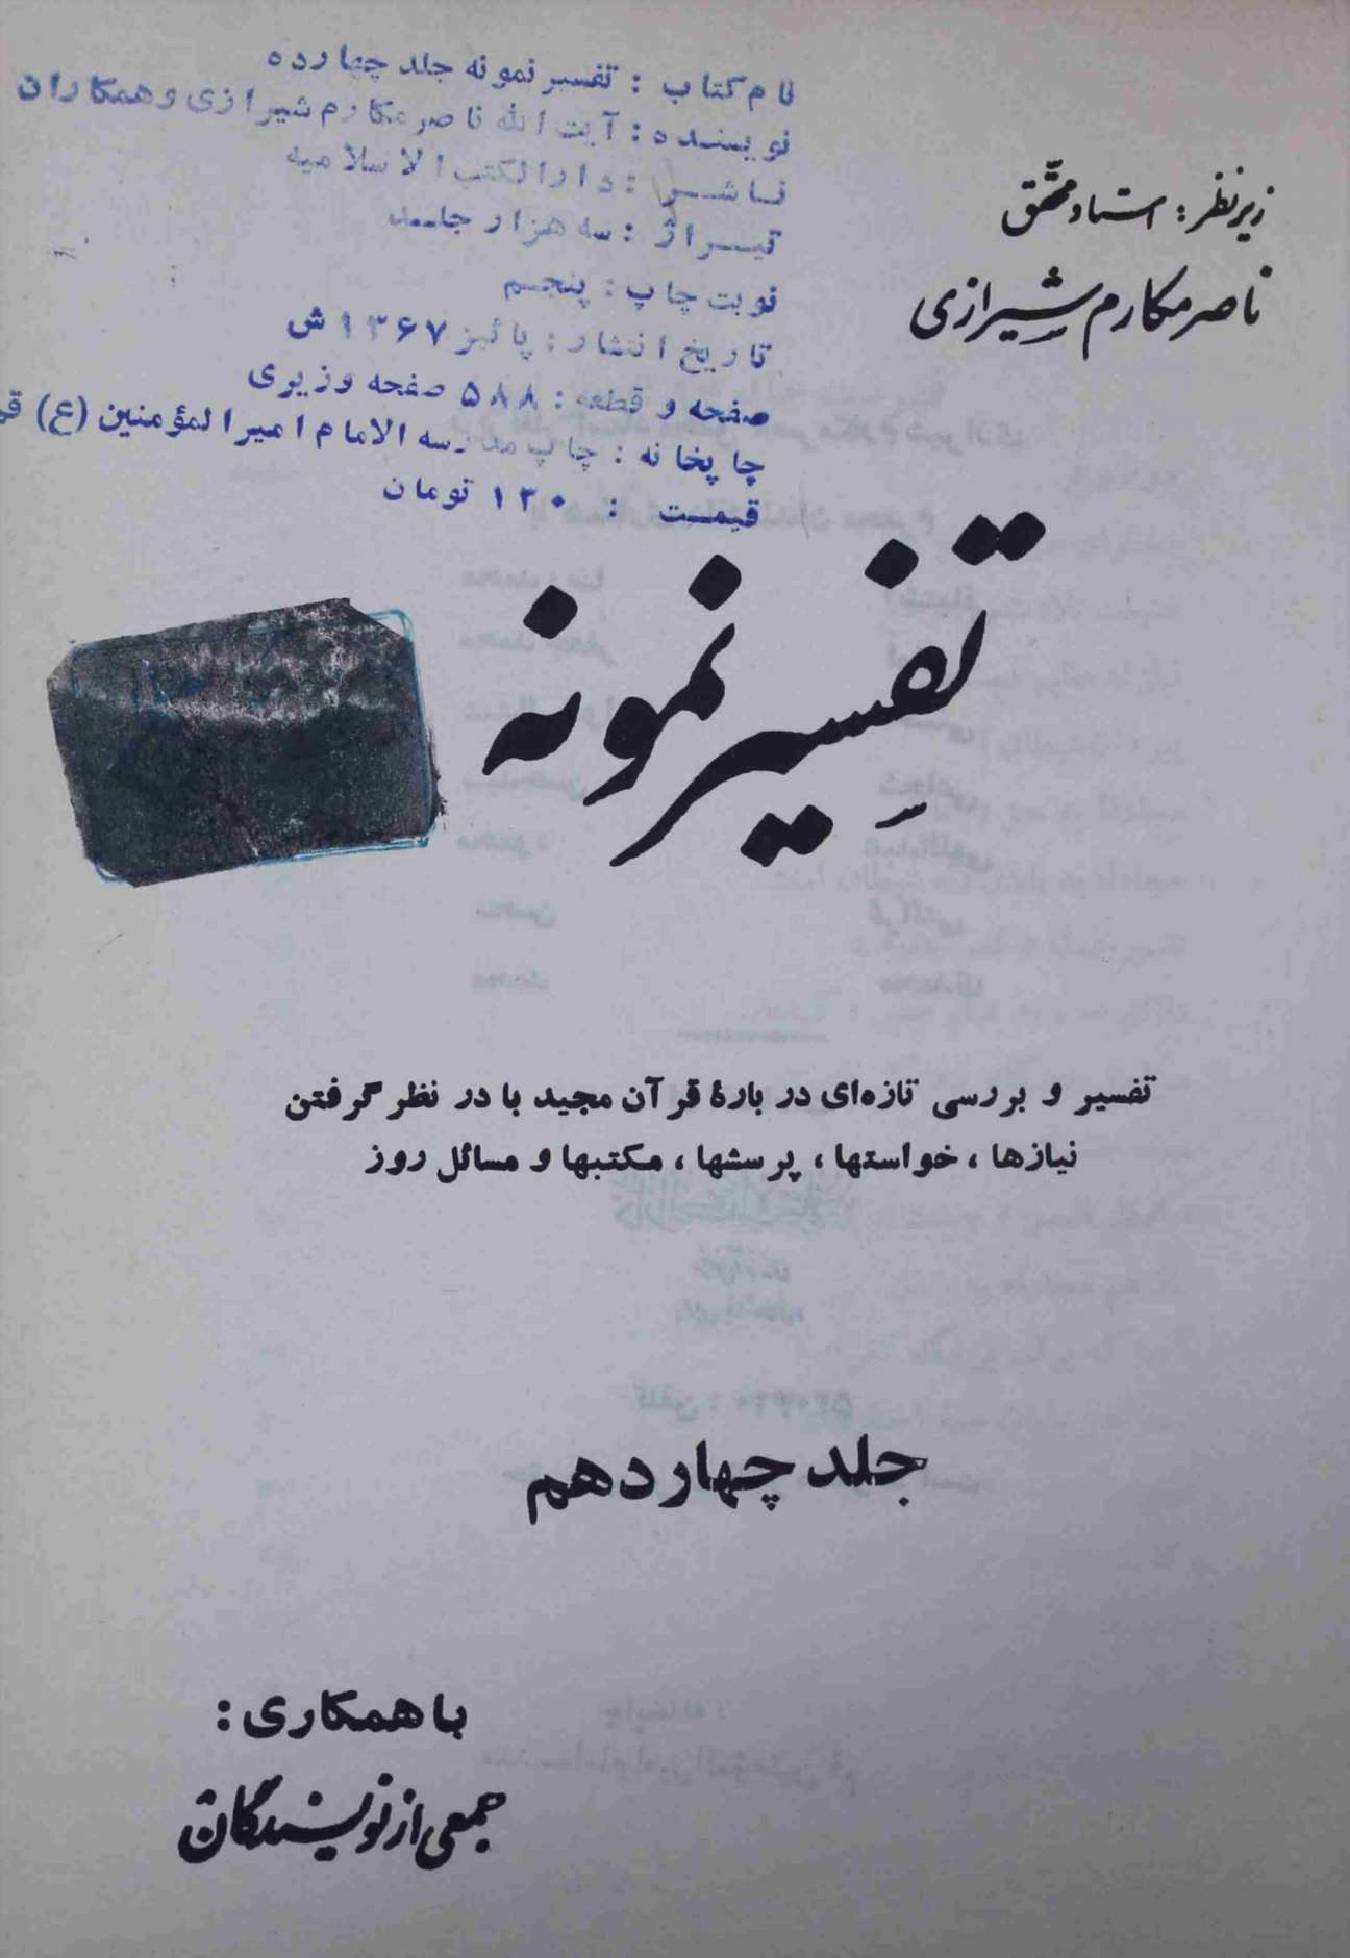 نام کتاب : تفسیر نمونه جلد چهارده
نویسنده : آیت الله ناصر مکارم شیرازی و همکاران
ناشر : دارالکتب الاسلامیه
تیراژ : سه هزار جلد
نوبت چاپ : پنجم
تاریخ انتشار : پائیز ۱۳۶۷ ش
صفحه و قطعه : ۵۸۸ صفحه وزیری
چاپخانه : چاپ مدرسه الامام امیرالمؤمنین (ع)
قیمت : ۱۲۰ تومان
زیر نظر : استاد محقّق
ناصر مکارم شیرازی
تفسیر نمونه
تفسیر و بررسی تازه‌ای در بارهٔ قرآن مجید با در نظر گرفتن
نیازها ، خواستها ، پرسشها ، مکتبها و مسائل روز
جلد چهاردهم
با همکاری :
جمعی از نویسندگان